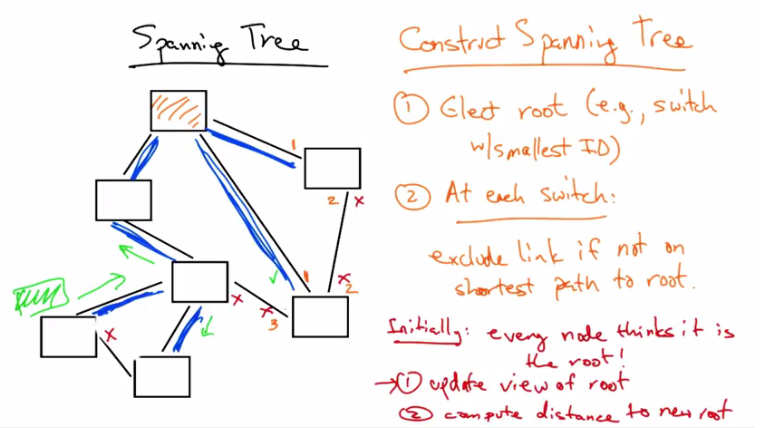 Spanning Tree
Construct Spanning Tree
① Elect root (e.g., switch
w/smallest ID)
② At each switch:
exclude link if not on
shortest path to root.
Initially: every node thinks it is
the root!
→① update view of root
② compute distance to new root
1
2 x
1
x
2
x
x
3
x